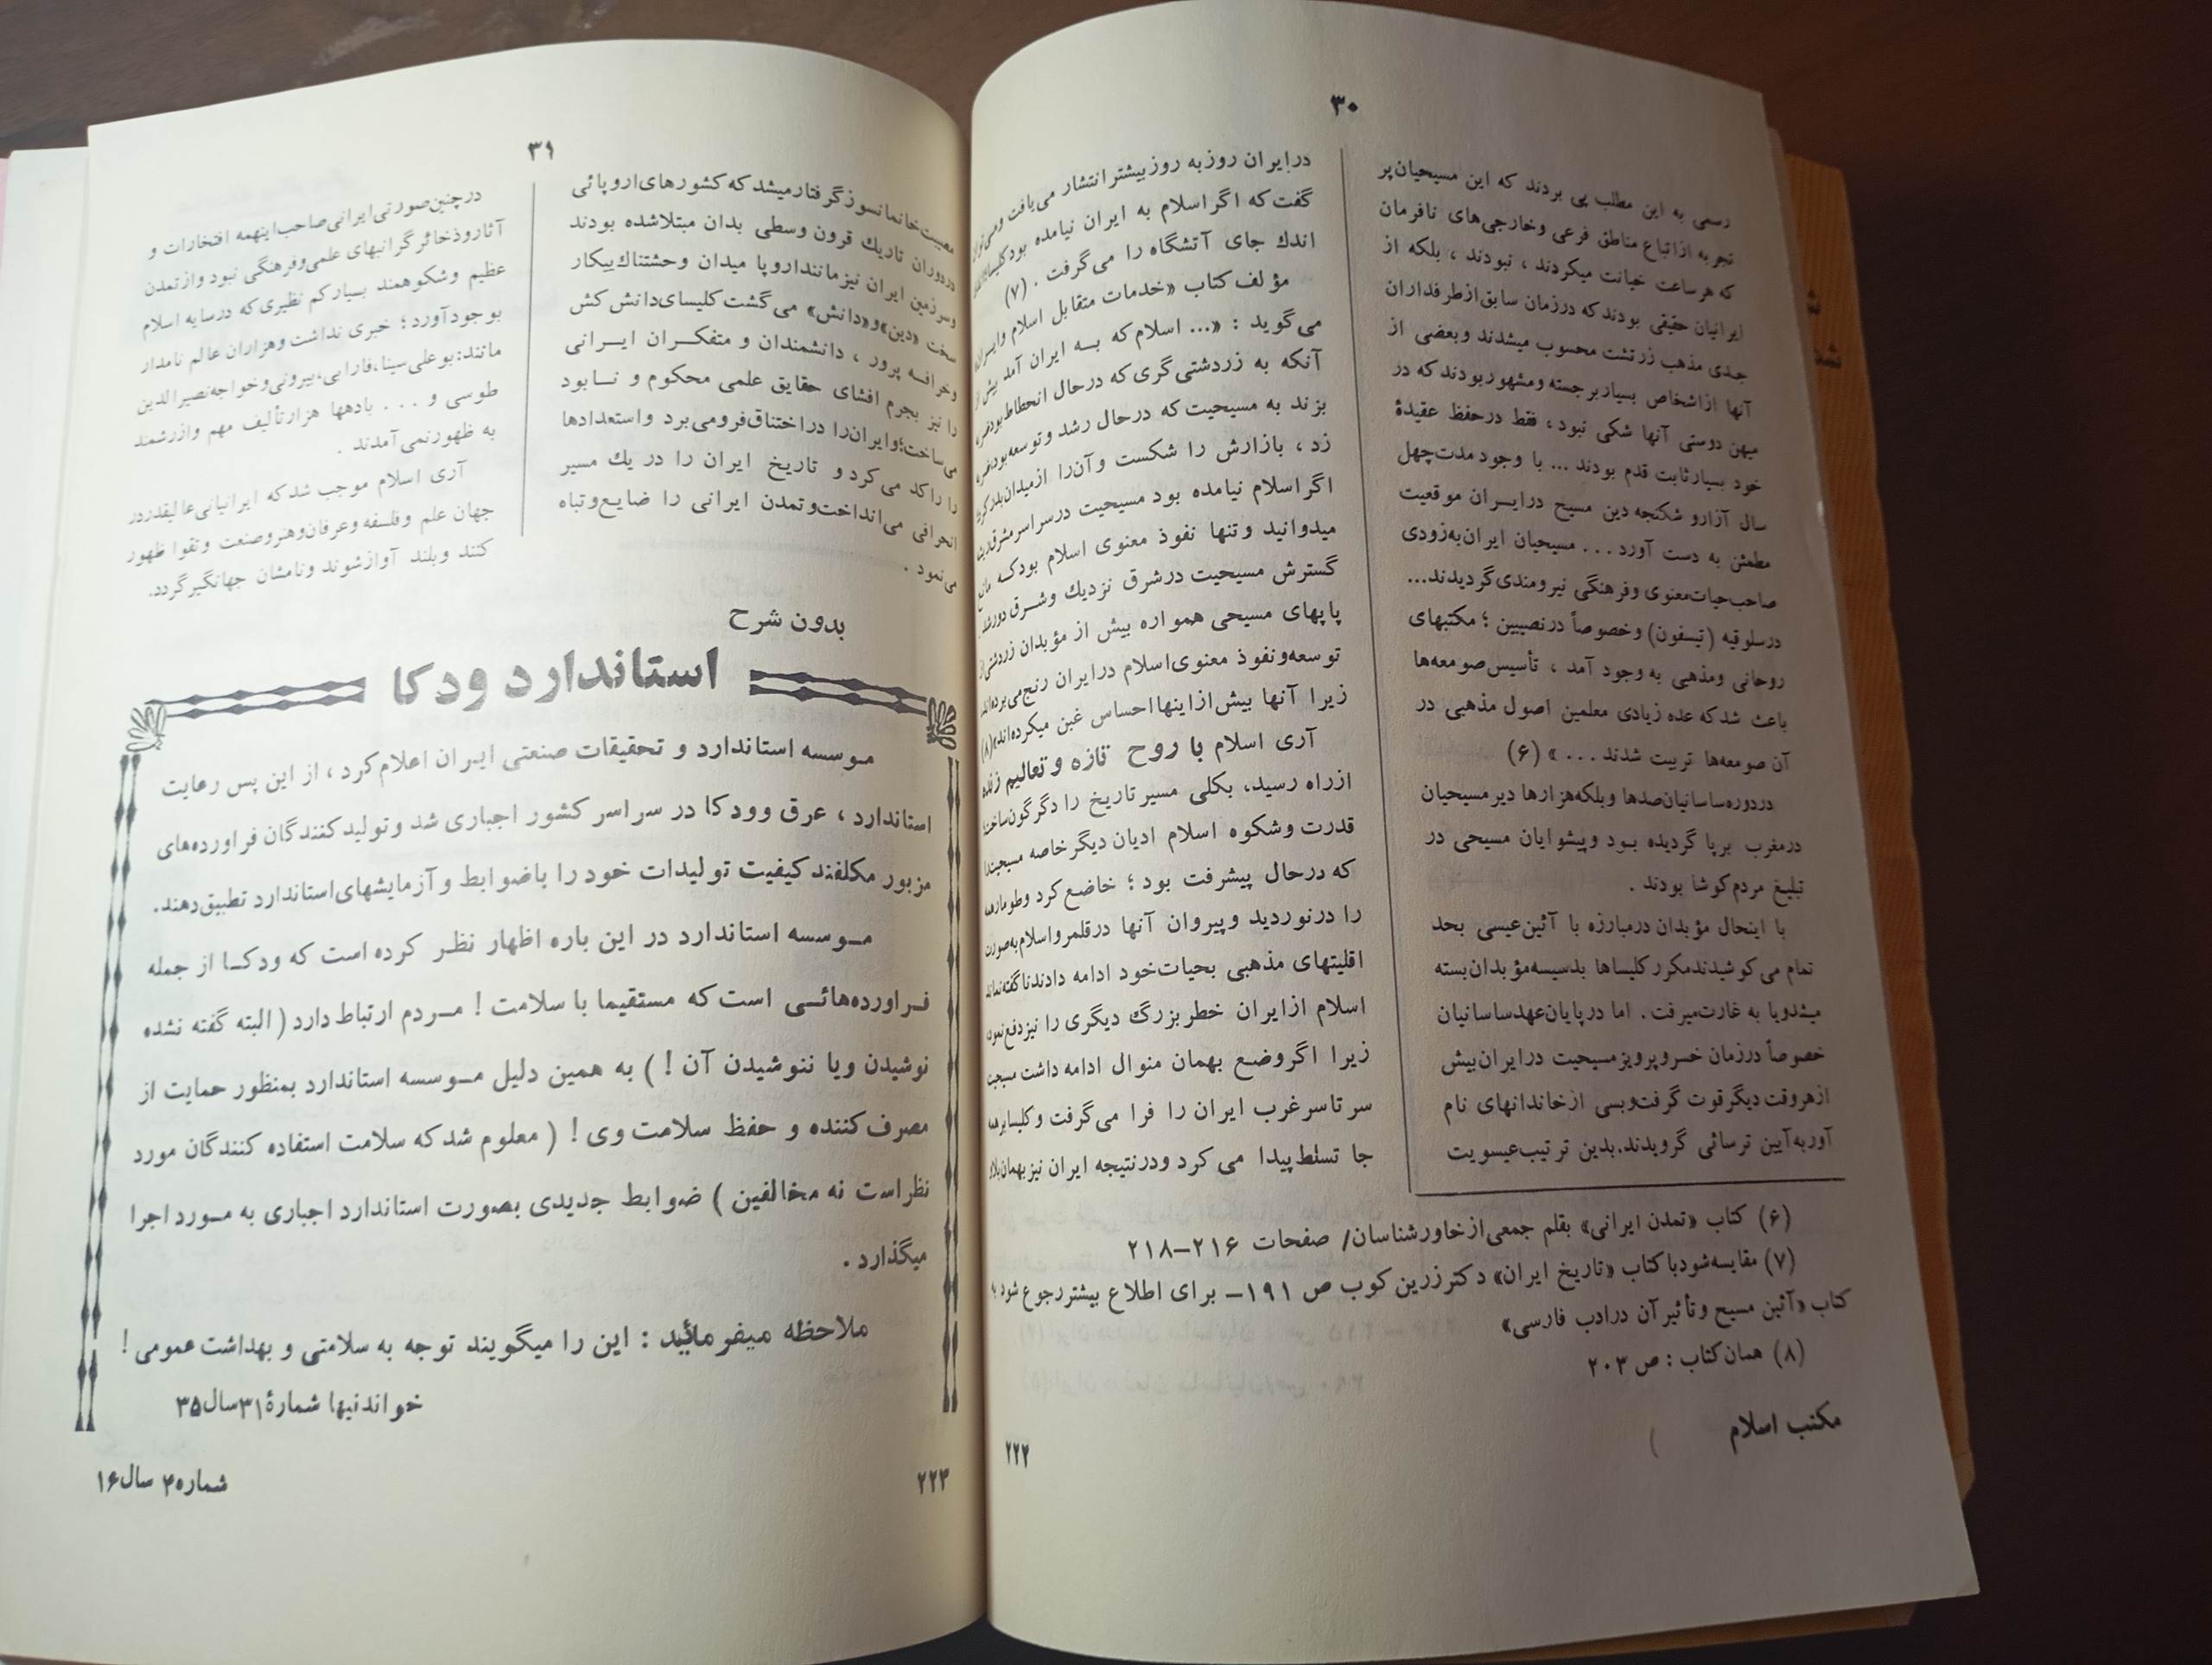 ۳۰
رسمی به این مطلب پی بردند که این مسیحیان‌پر
تجربه ازاتباع مناطق فرعی وخارجی‌های نافرمان
که هرساعت خیانت میکردند ، نبودند ، بلکه از
ایرانیان حقیقی بودند که درزمان سابق ازطرفداران
جدی مذهب زرتشت محسوب میشدند وبعضی از
آنها ازاشخاص بسیاربرجسته ومشهور بودند که در
میهن دوستی آنها شکی نبود ، فقط درحفظ عقیدهٔ
خود بسیارثابت قدم بودند ... با وجود مدت‌چهل
سال آزارو شکنجه دین مسیح درایـران موقعیت
مطمئن به دست آورد ... مسیحیان ایران‌به‌زودی
صاحب‌حیات‌معنوی وفرهنگی نیرومندی‌گردیدند...
درسلوقیه (تیسفون) وخصوصاً درنصیبین ؛ مکتبهای
روحانی ومذهبی به وجود آمد ، تأسیس‌صومعه‌ها
باعث شدکه عده زیادی معلمین اصول مذهبی در
آن صومعه‌ها تربیت شدند ... » (۶)
دردوره‌ساسانیان‌صدها وبلکه‌هزارها دیرمسیحیان
درمغرب برپا گردیده بـود وپیشوایان مسیحی در
تبلیغ مردم‌کوشا بودند .
با اینحال مؤبدان درمبارزه با آئین‌عیسی بحد
تمام می‌کوشیدندمکررکلیساها بدسیسه‌مؤبدان‌بسته
میشدویا به غارت‌میرفت . اما درپایان‌عهدساسانیان
خصوصاً درزمان خسروپرویزمسیحیت درایران‌بیش
ازهروقت دیگرقوت گرفت‌وبسی ازخاندانهای نام
آوربه‌آیین ترسائی گرویدند.بدین ترتیب‌عیسویت
درایران روزبه روزبیشترانتشار می‌یافت ومی‌توان
گفت‌که اگراسلام به ایران نیامده بود
اندك جای آتشگاه را می‌گرفت . (۷)
مؤلف کتاب «خدمات متقابل اسلام وایران
می‌گوید : «... اسلام‌که بـه ایران آمد بیش از
آنکه به زردشتی‌گری‌که درحال انحطاط‌بود
بزند به مسیحیت که درحال رشد وتوسعه‌بود
زد ، بازارش را شکست وآن‌را ازمیدان‌بدرکرد
اگراسلام نیامده بود مسیحیت درسراسرمشرق
میدوانید وتنها نفوذ معنوی اسلام بودکـه مانع
گسترش مسیحیت درشرق نزدیك وشـرق دورشد
پاپهای مسیحی همواره بیش از مؤبدان زردشتی‌از
توسعه‌ونفوذ معنوی‌اسلام درایران رنج‌می‌برده‌اند
زیرا آنها بیش‌ازاینهااحساس غبن میکرده‌اند»(۸)
آری اسلام با روح تازه وتعالیم زنده
ازراه رسید، بکلی مسیرتاریخ را دگرگون‌ساخت
قدرت وشکوه اسلام ادیان دیگرخاصه مسیحیت‌را
که درحال پیشرفت بود ؛ خاضع‌کرد وطومارهمه
را درنوردید وپیروان آنها درقلمرواسلام‌به‌صورت
اقلیتهای مذهبی بحیات‌خود ادامه دادندناگفته‌نماند
اسلام ازایران خطربزرگ دیگری را نیزدفع‌نمود
زیرا اگروضع بهمان منوال ادامه داشت مسیحیت
سرتاسرغرب ایران را فرا می‌گرفت وکلیسابرهمه
جا تسلط‌پیدا می کرد ودرنتیجه ایران نیزبهمان‌بلای
(۶) کتاب «تمدن ایرانی» بقلم جمعی‌ازخاورشناسان/ صفحات ۲۱۶–۲۱۸
(۷) مقایسه‌شودباکتاب «تاریخ ایران» دکترزرین‌کوب ص ۱۹۱– برای اطلاع بیشتررجوع شود ؛
کتاب «آئین مسیح وتأثیرآن درادب فارسی»
(۸) همان‌کتاب : ص ۲۰۳
مکتب اسلام
۲۲۲
۳۱
مصیبت‌خانمانسوزگرفتارمیشدکه‌کشورهای‌اروپائی
دردوران تاریك قرون وسطی بدان مبتلاشده بودند
وسرزمین ایران نیزمانندارو‌پا میدان وحشتناك‌پیکار
سخت «دین»و«دانش» می‌گشت‌کلیسای‌دانش‌کش
وخرافـه پرور ، دانشمندان و متفکـران ایـرانی
را نیز بجرم افشای حقایق علمی محکوم و نـابود
می‌ساخت؛وایران‌را دراختناق‌فرومی‌برد واستعدادها
را راکد می‌کرد و تاریخ ایران را در یك مسیر
انحرافی می‌انداخت‌وتمدن ایرانی را ضایـع‌وتباه
می‌نمود .
درچنین‌صورتی‌ایرانی‌صاحب‌اینهمه افتخارات و
آثاروذخائرگرانبهای علمی‌وفرهنگی نبود وازتمدن
عظیم وشکوهمند بسیارکم نظیری‌که درسایه اسلام
بوجودآورد ؛ خبری نداشت وهزاران عالم نامدار
مانند:بوعلی‌سینا،فارابی،بیرونی‌وخواجه‌نصیرالدین
طوسی و ... بادهها هزارتألیف مهم وازرشمند
به ظهورنمی‌آمدند .
آری اسلام موجب شدکه ایرانیانی‌عالیقدردر
جهان علم وفلسفه وعرفان‌وهنروصنعت وتقوا ظهور
کنند وبلند آوازشوند ونامشان جهانگیرگردد.
بدون شرح
استاندارد ودکا
مـوسسه استاندارد و تحقیقات صنعتی ایـران اعلام‌کرد ، از این پس رعایت
استاندارد ، عرق وودکا در سراسرکشور اجباری شد وتولیدکنندگان فراورده‌های
مزبور مکلفندکیفیت تولیدات خود را باضوابط وآزمایشهای‌استاندارد تطبیق‌دهند.
مـوسسه استاندارد در این باره اظهار نظـر کرده است که ودکـا از جمله
فـراورده‌هائـی است‌که مستقیما با سلامت ! مـردم ارتباط دارد ( البته گفته نشده
نوشیدن ویا ننوشیدن آن ! ) به همین دلیل مـوسسه استاندارد بمنظور حمایت از
مصرف‌کننده و حفظ سلامت وی ! ( معلوم شدکه سلامت استفاده کنندگان مورد
نظراست نه مخالفین ) ضوابط جدیدی بصورت استاندارد اجباری به مـورد اجرا
میگذارد .
ملاحظه میفرمائید : این را میگویند توجه به سلامتی و بهداشت عمومی !
خواندنیها شمارهٔ۳۱سال۳۵
۲۲۳
شماره۴ سال۱۶